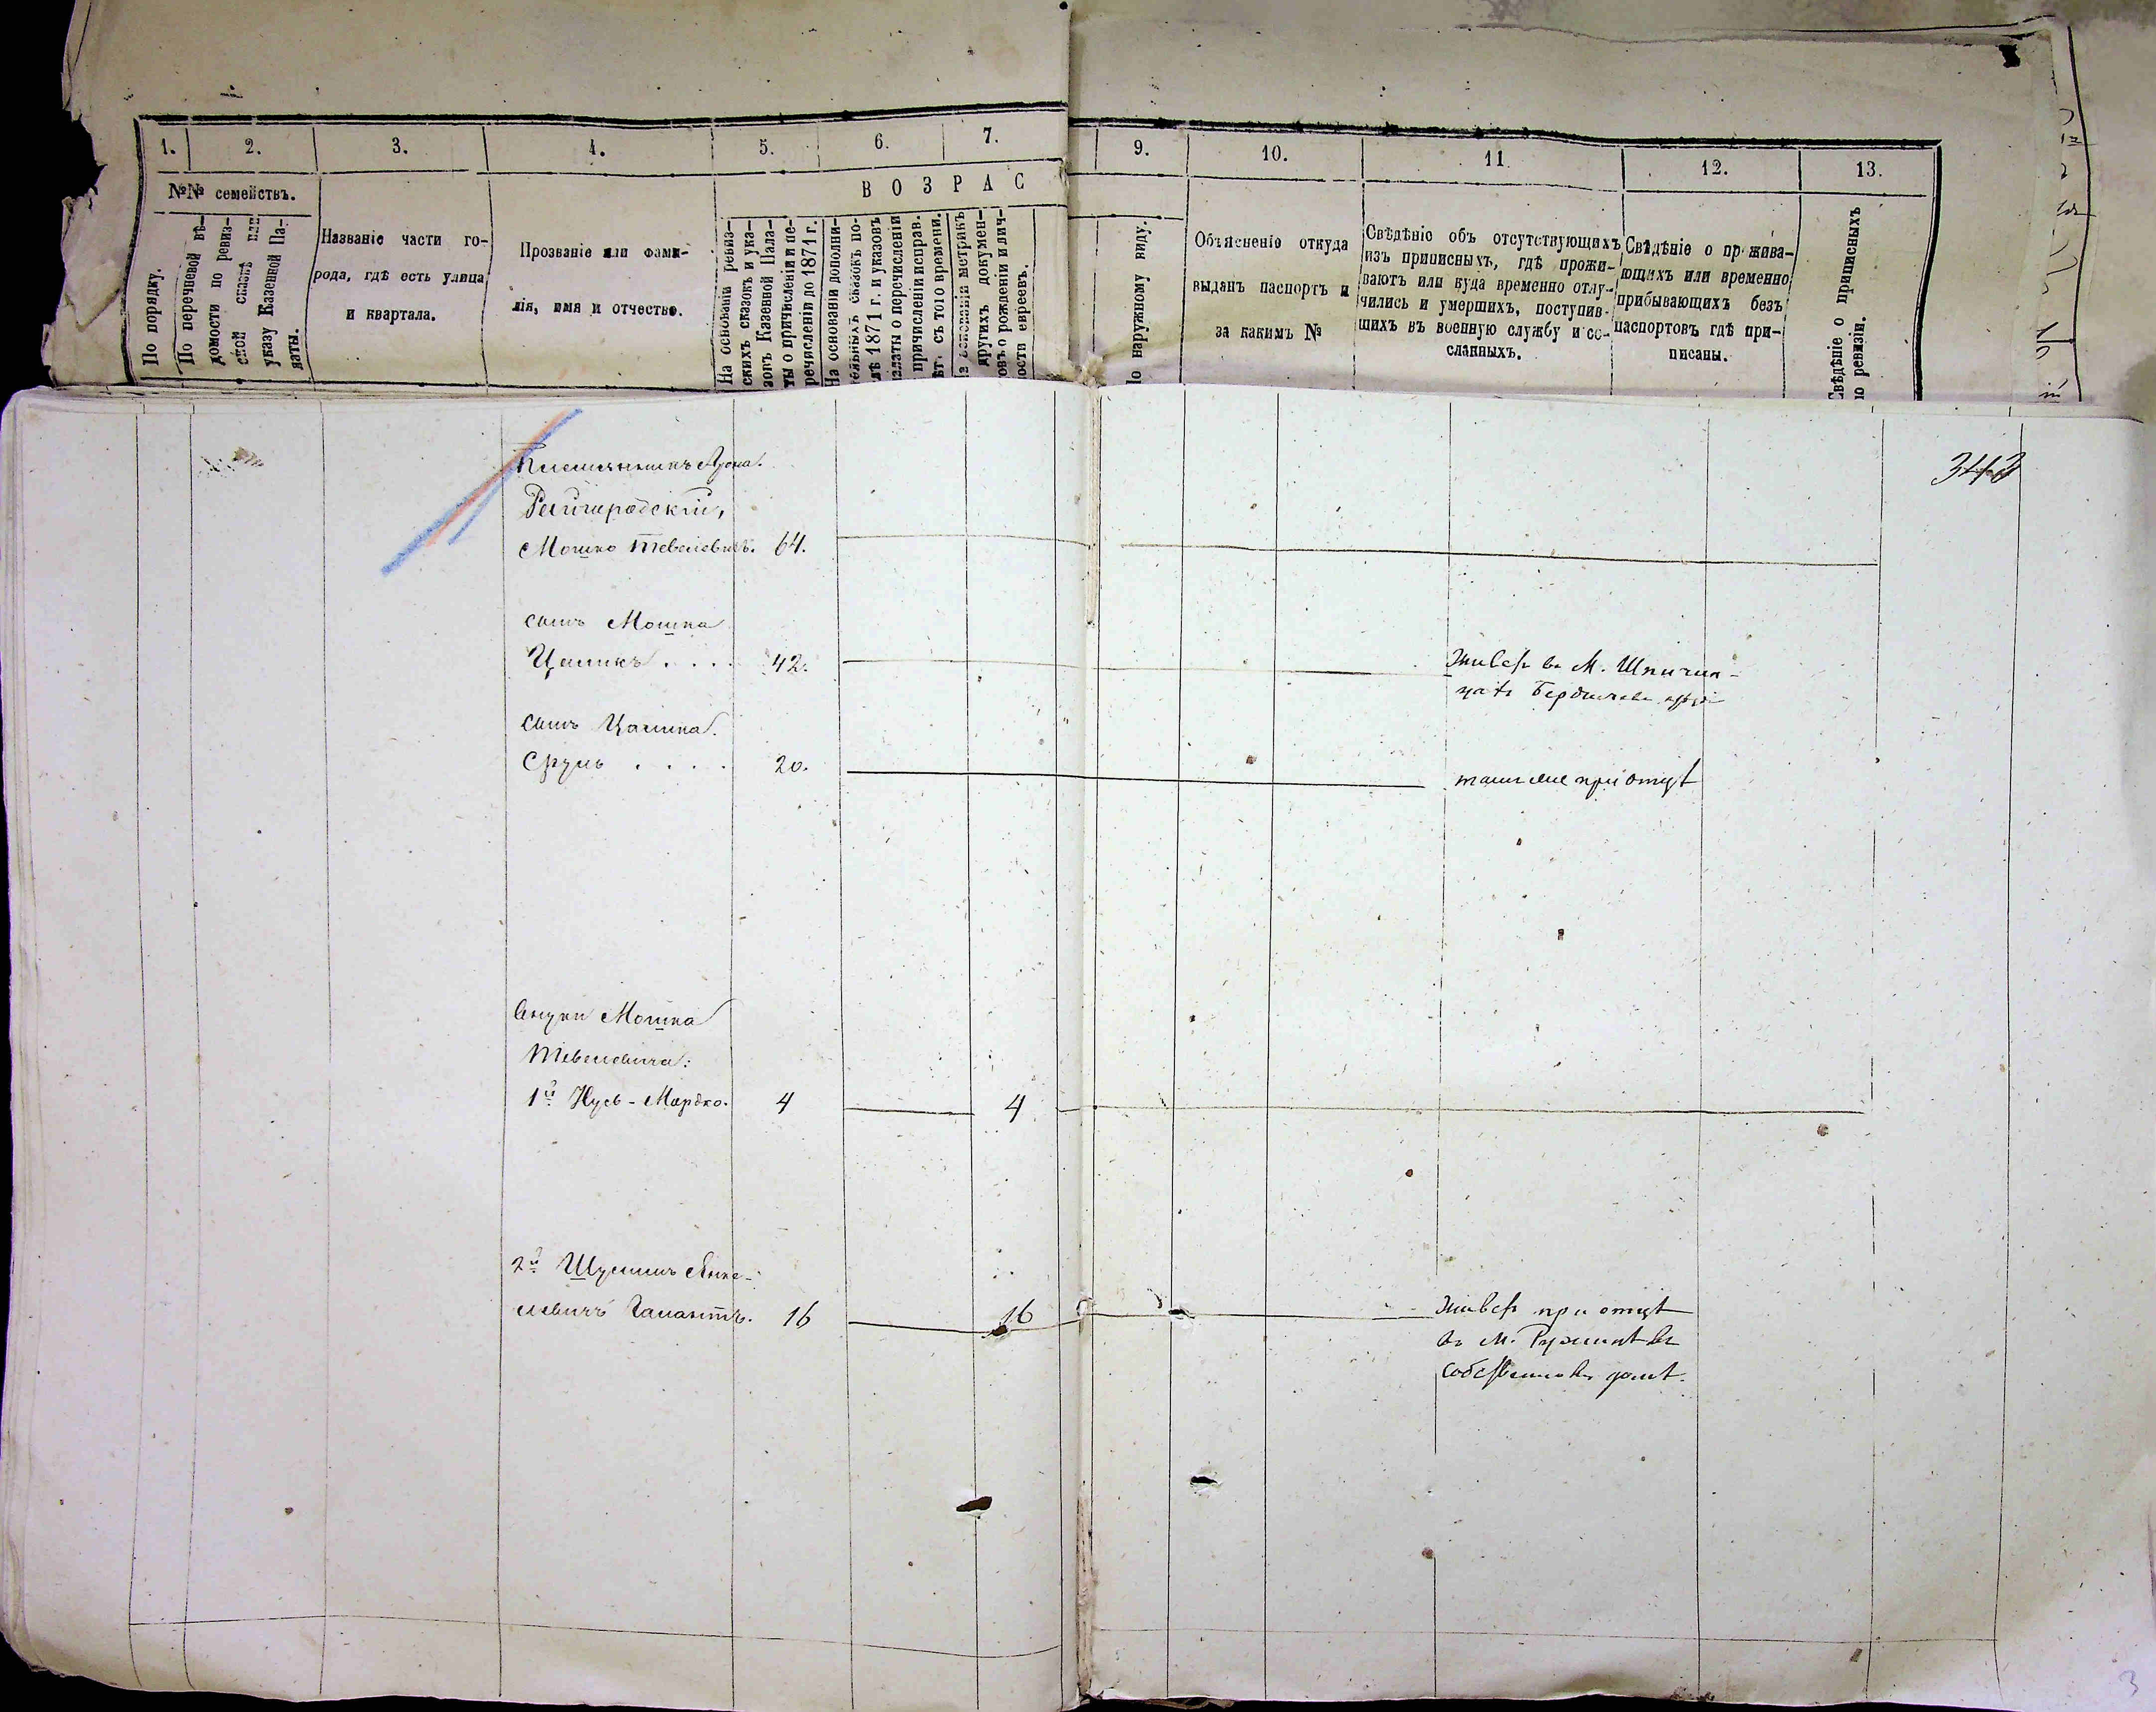 1.
2.
3.
4.
5.
6.
7.
9.
10.
11.
12.
13.
№№ семействъ.
По порядку.
По перечневой вѣ-
домости по ревиз-
ской сказкѣ или
указу Казенной Па-
латы.
Названіе части го-
рода, гдѣ есть улица
и квартала.
Прозваніе или фами-
лія, имя и отчество.
ВОЗРАС
На основаніи ревиз-
скихъ сказокъ и ука-
зовъ Казенной Пала-
ты о причисленіи и пе-
речисленіи до 1871 г.
На основаніи дополни-
тельныхъ сказокъ по-
слѣ 1871 г. и указовъ
палаты о перечисленіи
причисленіи исправ.
лѣт. съ того времени.
На основаніи метрикъ
другихъ докумен-
товъ о рожденіи и лич-
ности евреевъ.
По наружному виду.
Объясненіе откуда
выданъ паспортъ и
за какимъ №
Свѣдѣніе объ отсутствующихъ
изъ приписныхъ, гдѣ прожи-
ваютъ или куда временно отлу-
чились и умершихъ, поступив-
шихъ въ военную службу и со-
сланныхъ.
Свѣдѣніе о прожива-
ющихъ или временно
прибывающихъ безъ
паспортовъ гдѣ при-
писаны.
Свѣдѣніе о приписныхъ
по ревизіи.
343
Мошко Тевелевичъ. 64.
сынъ Мошка
Цаликъ . . . . 42. живетъ въ М. Шпичин-
цахъ Бердичевс.
сынъ Цалика.
Сруль . . . . 20. тамъ же при отцѣ
внуки Мошка
Тевелевича:
1й Нусь-Мордко. 4 4
2й Шулимъ Янке-
левичъ Галантъ. 16 16 живетъ при отцѣ
въ М. Ружинѣ въ
собственномъ домѣ.
3